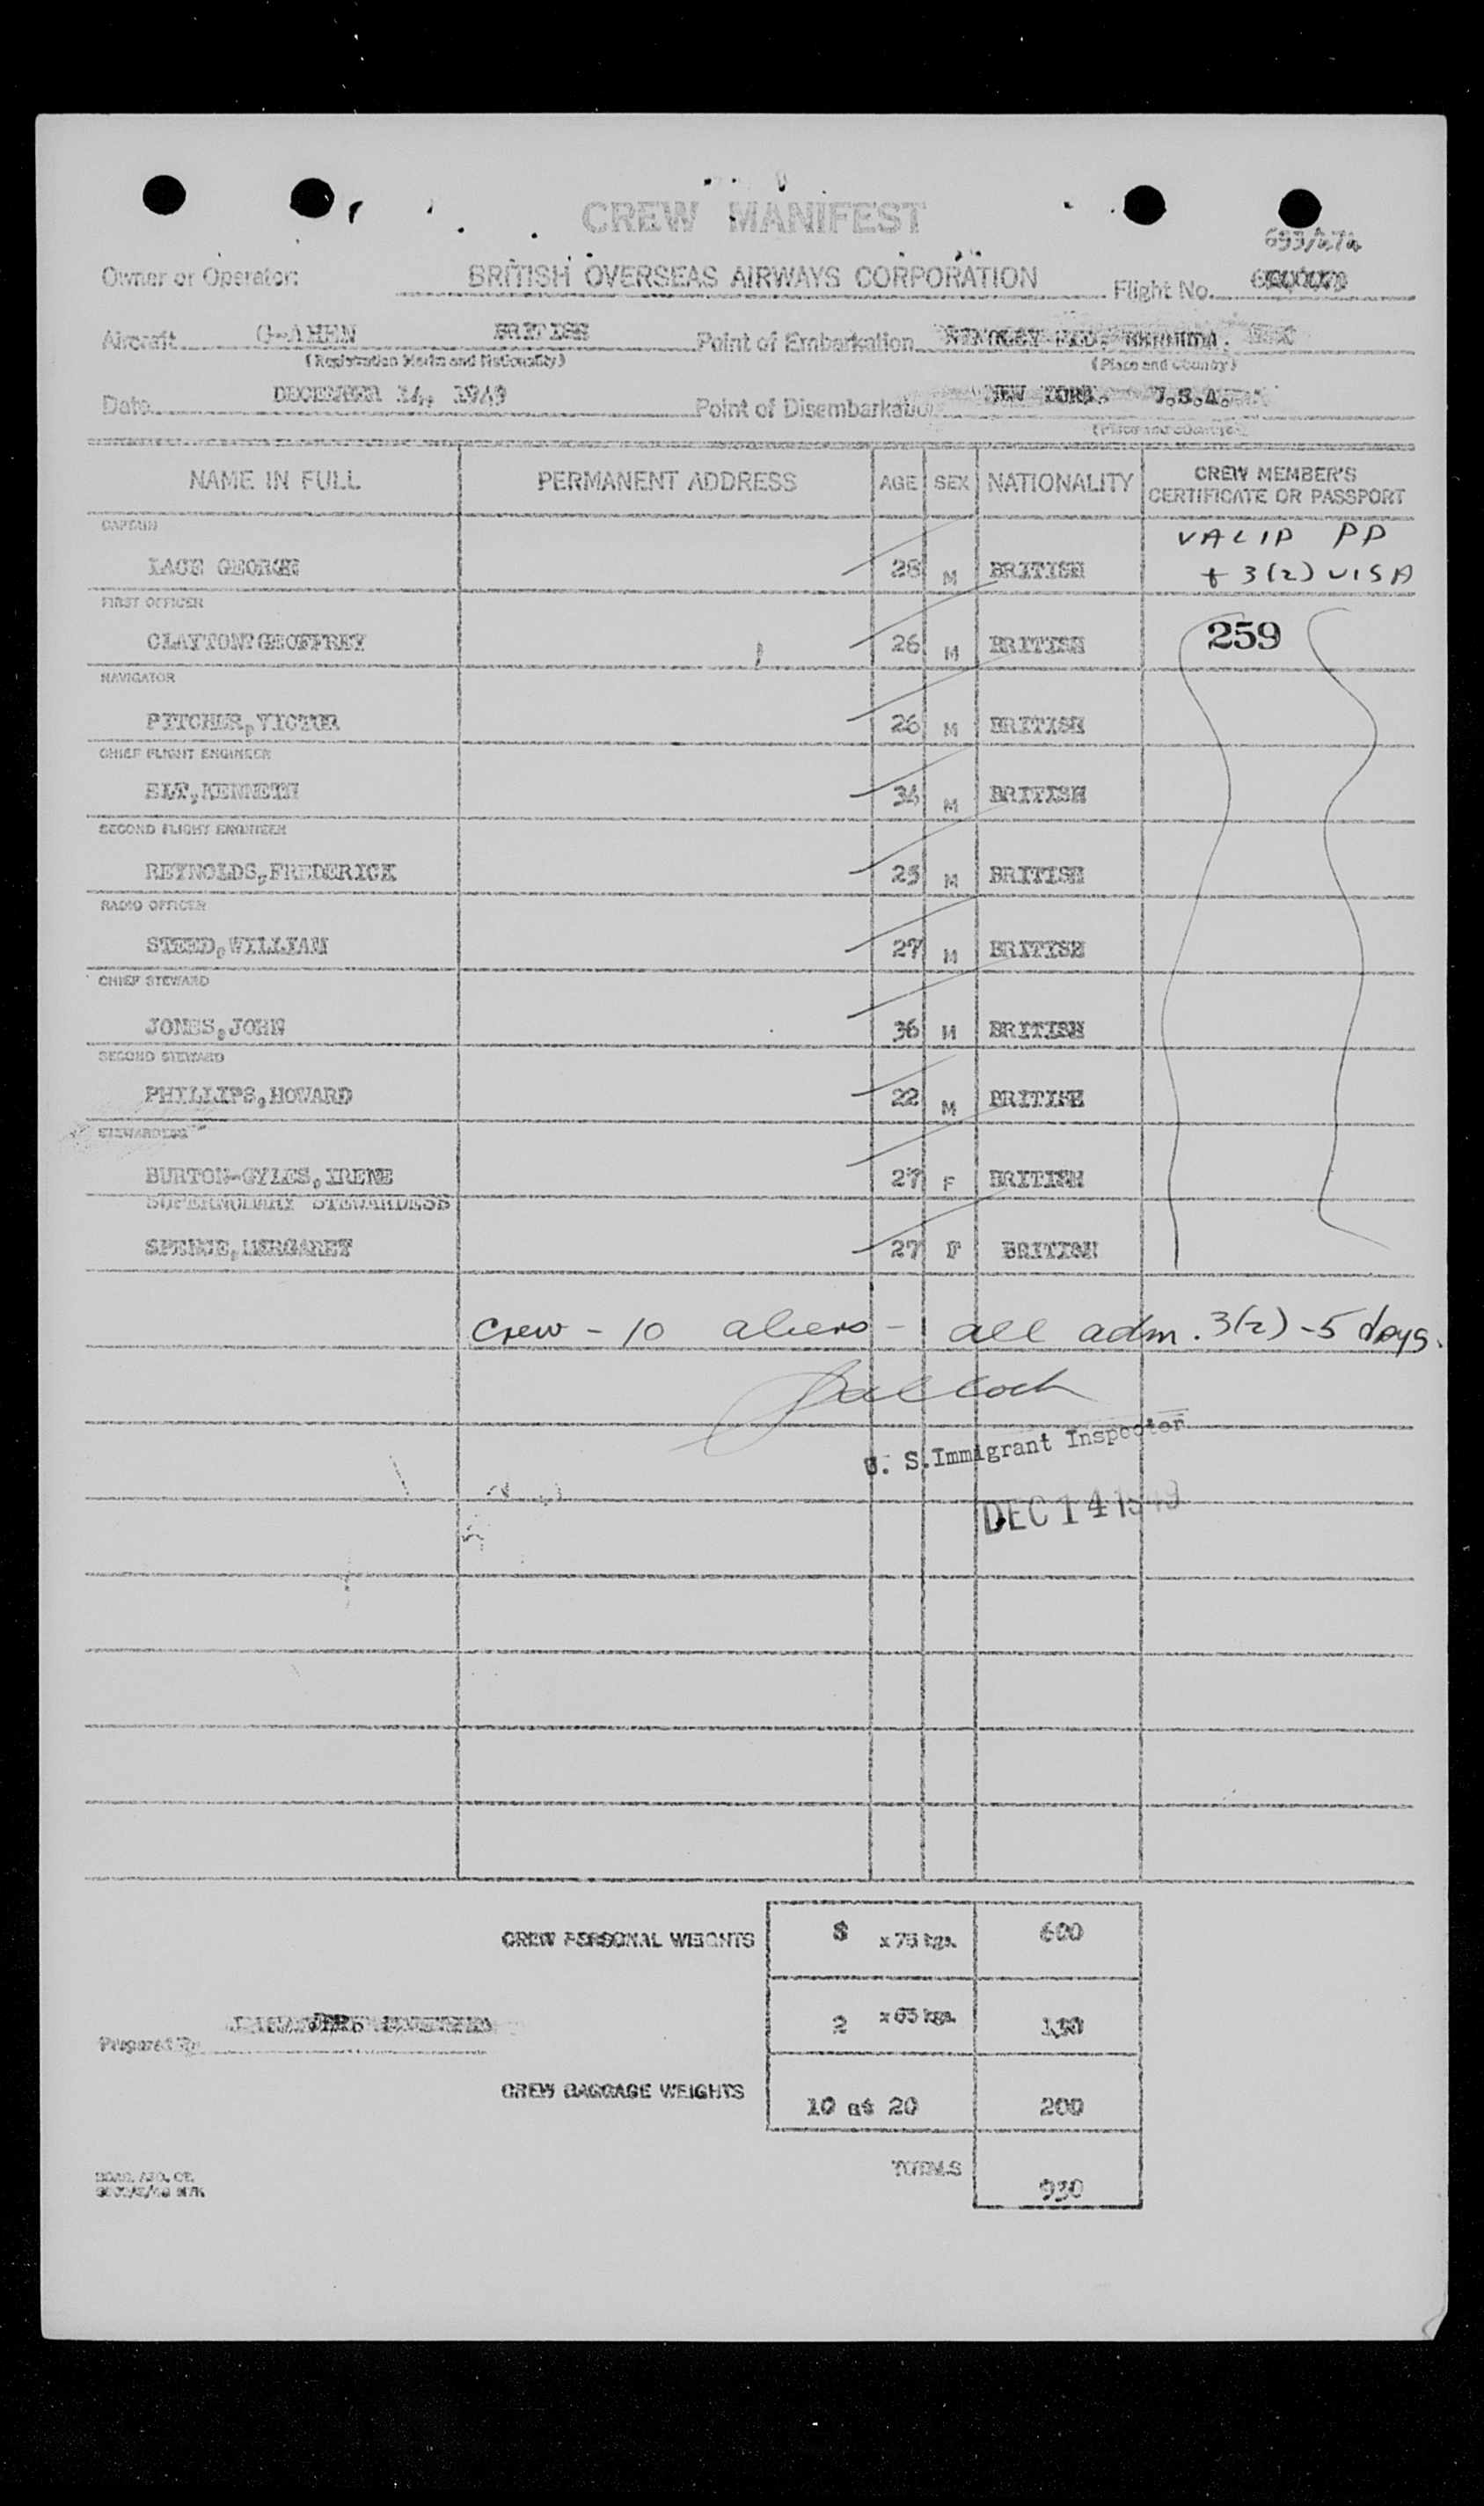 CREW MANIFEST
Owner or Operator: BRITISH OVERSEAS AIRWAYS CORPORATION Flight No.
Aircraft G-AHEN BRITISH Point of Embarkation
(Registration Marks and Nationality) (Place and Country)
Date DECEMBER 14, 1949 Point of Disembarkation NEW YORK. U.S.A.
(Place and Country)
NAME IN FULL PERMANENT ADDRESS AGE SEX NATIONALITY CREW MEMBER'S CERTIFICATE OR PASSPORT
CAPTAIN
VALID PP
LACE GEORGE 28 M BRITISH + 3(2) VISA
FIRST OFFICER
CLAYTON, GEOFFREY 26 M BRITISH 259
NAVIGATOR
PITCHER, VICTOR 26 M BRITISH
CHIEF FLIGHT ENGINEER
KENNETH 34 M BRITISH
SECOND FLIGHT ENGINEER
REYNOLDS, FREDERICK 25 M BRITISH
RADIO OFFICER
STEED, WILLIAM 27 M BRITISH
CHIEF STEWARD
JONES, JOHN 36 M BRITISH
SECOND STEWARD
PHILLIPS, HOWARD 22 M BRITISH
STEWARDESS
BURTON-GYLES, IRENE 27 F BRITISH
SUPERNUMARY STEWARDESS
SPENCE, MARGARET 27 F BRITISH
Crew - 10 aliens - all adm. 3(2) - 5 days.
U. S. Immigrant Inspector
DEC 14 1949
CREW PERSONAL WEIGHTS 8 x 75 kgs. 600
2 x 65 kgs. 130
Prepared By
CREW BAGGAGE WEIGHTS 10 at 20 200
TOTALS 930